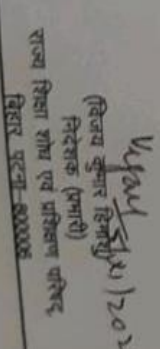 (विजय कुमार हिमांशु)
निदेशक (प्रभारी)
राज्य शिक्षा शोध एवं प्रशिक्षण परिषद्,
बिहार पटना-800006